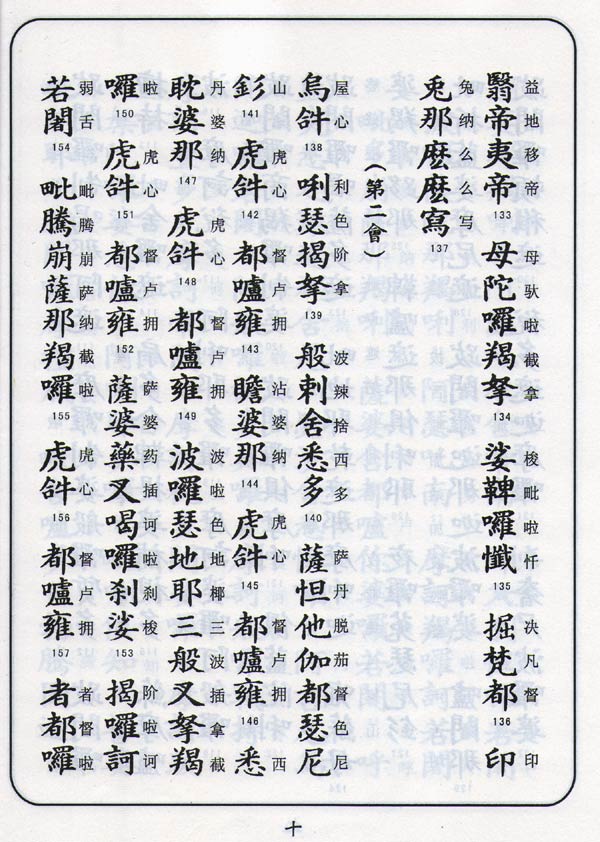 益地移帝 母驮啦截拿 梭毗啦忏 决凡督 印
翳帝夷帝 133 母陀囉羯拏 134 娑鞞囉懺 135 掘梵都 136 印
兔纳么么写
兎那麽麽寫 137
（第二會）
屋心 利色阶拿 波辣捨西多 萨丹脱茄督色尼
烏𤙖 138 唎瑟揭拏 139 般剌舍悉多 140 薩怛他伽都瑟尼
山 虎心 督卢拥 沾婆纳 虎心 督卢拥 西
釤 141 虎𤙖 142 都嚧雍 143 瞻婆那 144 虎𤙖 145 都嚧雍 146 悉
丹婆纳 虎心 督卢拥 波啦色地椰三波插拿截
耽婆那 147 虎𤙖 148 都嚧雍 149 波囉瑟地耶三般叉拏羯
啦 虎心 督卢拥 萨婆药插诃啦刹梭 阶啦诃
囉 150 虎𤙖 151 都嚧雍 152 薩婆藥叉喝囉刹娑 153 揭囉訶
弱舌 毗腾崩萨纳截啦 虎心 督卢拥 者督啦
若闍 154 毗騰崩薩那羯囉 155 虎𤙖 156 都嚧雍 157 者都囉
十